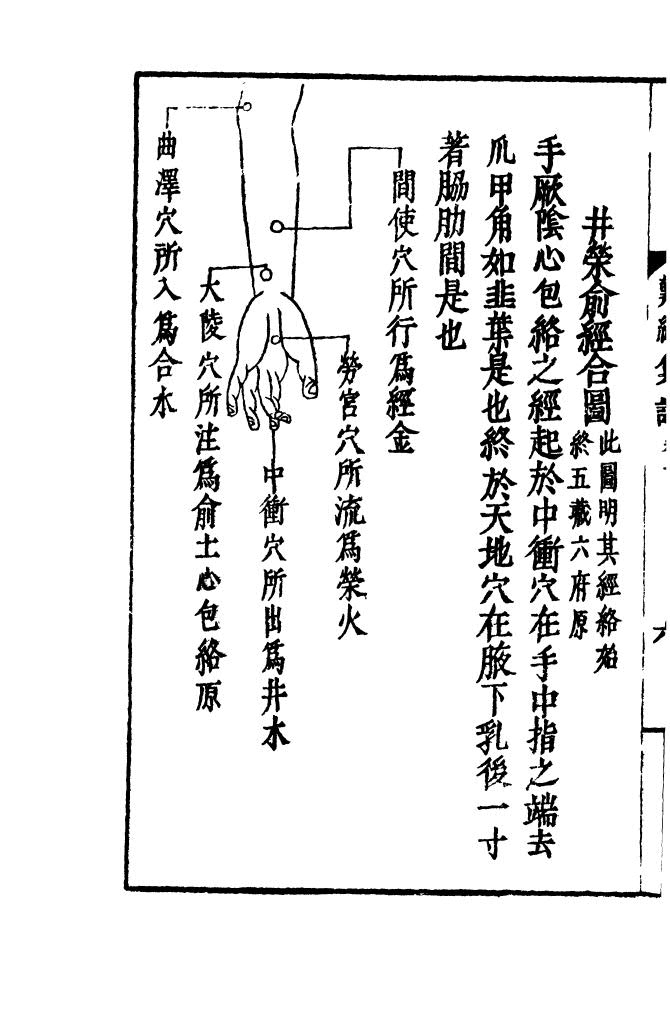 井榮俞經合圖
此圖明其經絡始
終五藏六府原
手厥陰心包絡之經起於中衝穴在手中指之端去
爪甲角如韭葉是也終於天地穴在腋下乳後一寸
著脇肋間是也
間使穴所行爲經金
勞宮穴所流爲榮火
中衝穴所出爲井水
大陵穴所注爲俞土心包絡原
曲澤穴所入爲合水